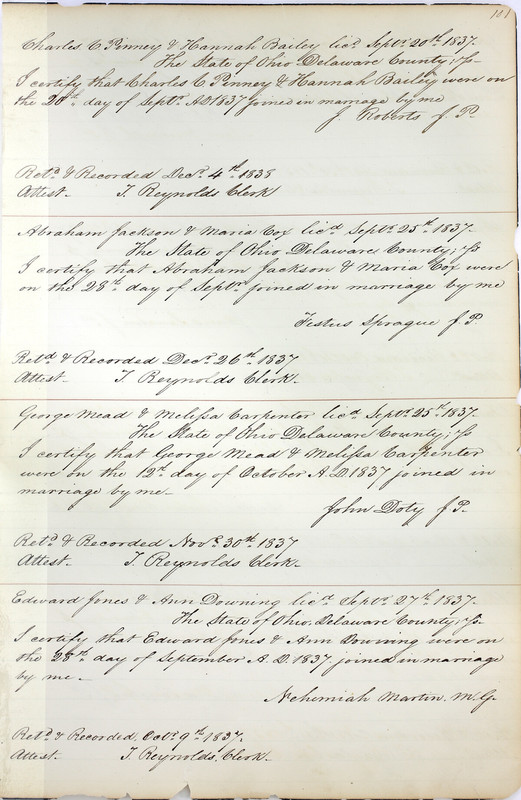 101
Charles C. Pinney & Hannah Bailey licd. Septr. 20th. 1837.
The State of Ohio Delaware County; ss
I certify that Charles C. Pinney & Hannah Bailey were on
the 20th. day of Septr. A.D 1837 joined in marriage by me
J. Roberts J. P.
Retd. & Recorded Decr. 4th. 1838
Attest. T. Reynolds Clerk
Abraham Jackson & Maria Cox licd. Septr. 25th. 1837.
The State of Ohio Delaware County; ss
I certify that Abraham Jackson & Maria Cox were
on the 28th. day of Septr. joined in marriage by me
Festus Sprague J. P.
Retd. & Recorded Decr. 26th. 1837
Attest. T. Reynolds Clerk.
George Mead & Melissa Carpenter licd. Septr. 25th. 1837.
The State of Ohio Delaware County; ss
I certify that George Mead & Melissa Carpenter
were on the 12th. day of October A. D. 1837 joined in
marriage by me.
John Doty J. P.
Retd. & Recorded Novr. 30th. 1837
Attest. T. Reynolds Clerk.
Edward Jones & Ann Downing licd. Septr. 27th. 1837.
The State of Ohio, Delaware County; ss.
I certify that Edward Jones & Ann Downing were on
the 28th. day of September A. D. 1837. joined in marriage
by me.
Nehemiah Martin. M. G.
Retd. & Recorded. Octr. 9th. 1837.
Attest. T. Reynolds. Clerk.